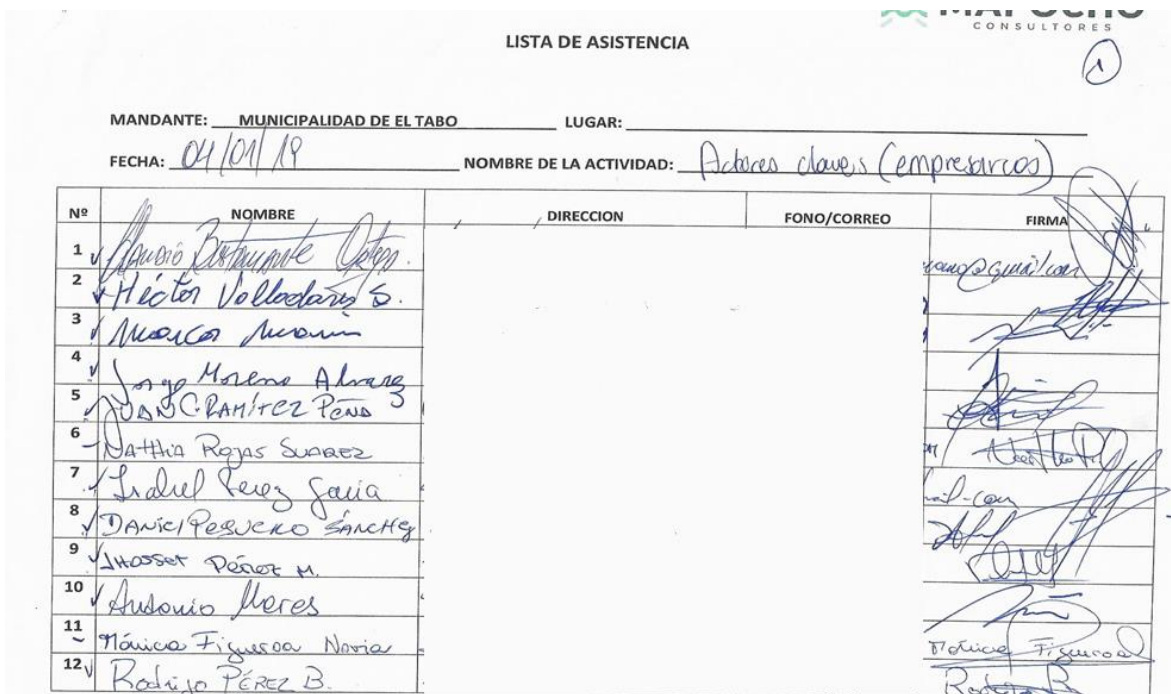 CONSULTORES
LISTA DE ASISTENCIA
1
MANDANTE: MUNICIPALIDAD DE EL TABO LUGAR:
FECHA: 04/01/19 NOMBRE DE LA ACTIVIDAD: Actores claves (empresarios)
Nº NOMBRE DIRECCION FONO/CORREO FIRMA
1 Claudio Bustamante Ortega. @gmail.com
2 Héctor Valladares S.
3 Marcos
4 Jorge Moreno Alvarez
5 JUAN C. RAMÍREZ PEÑA
6 Natthia Rojas Suarez
7 Isabel Perez
8 DANIEL PEGUERO SÁNCHEZ
9 JHOSSET Pérez M.
10 Antonio Mares
11 Mónica Figueroa Novia Mónica Figueroa
12 Rodrigo PÉREZ B. Rodrigo B